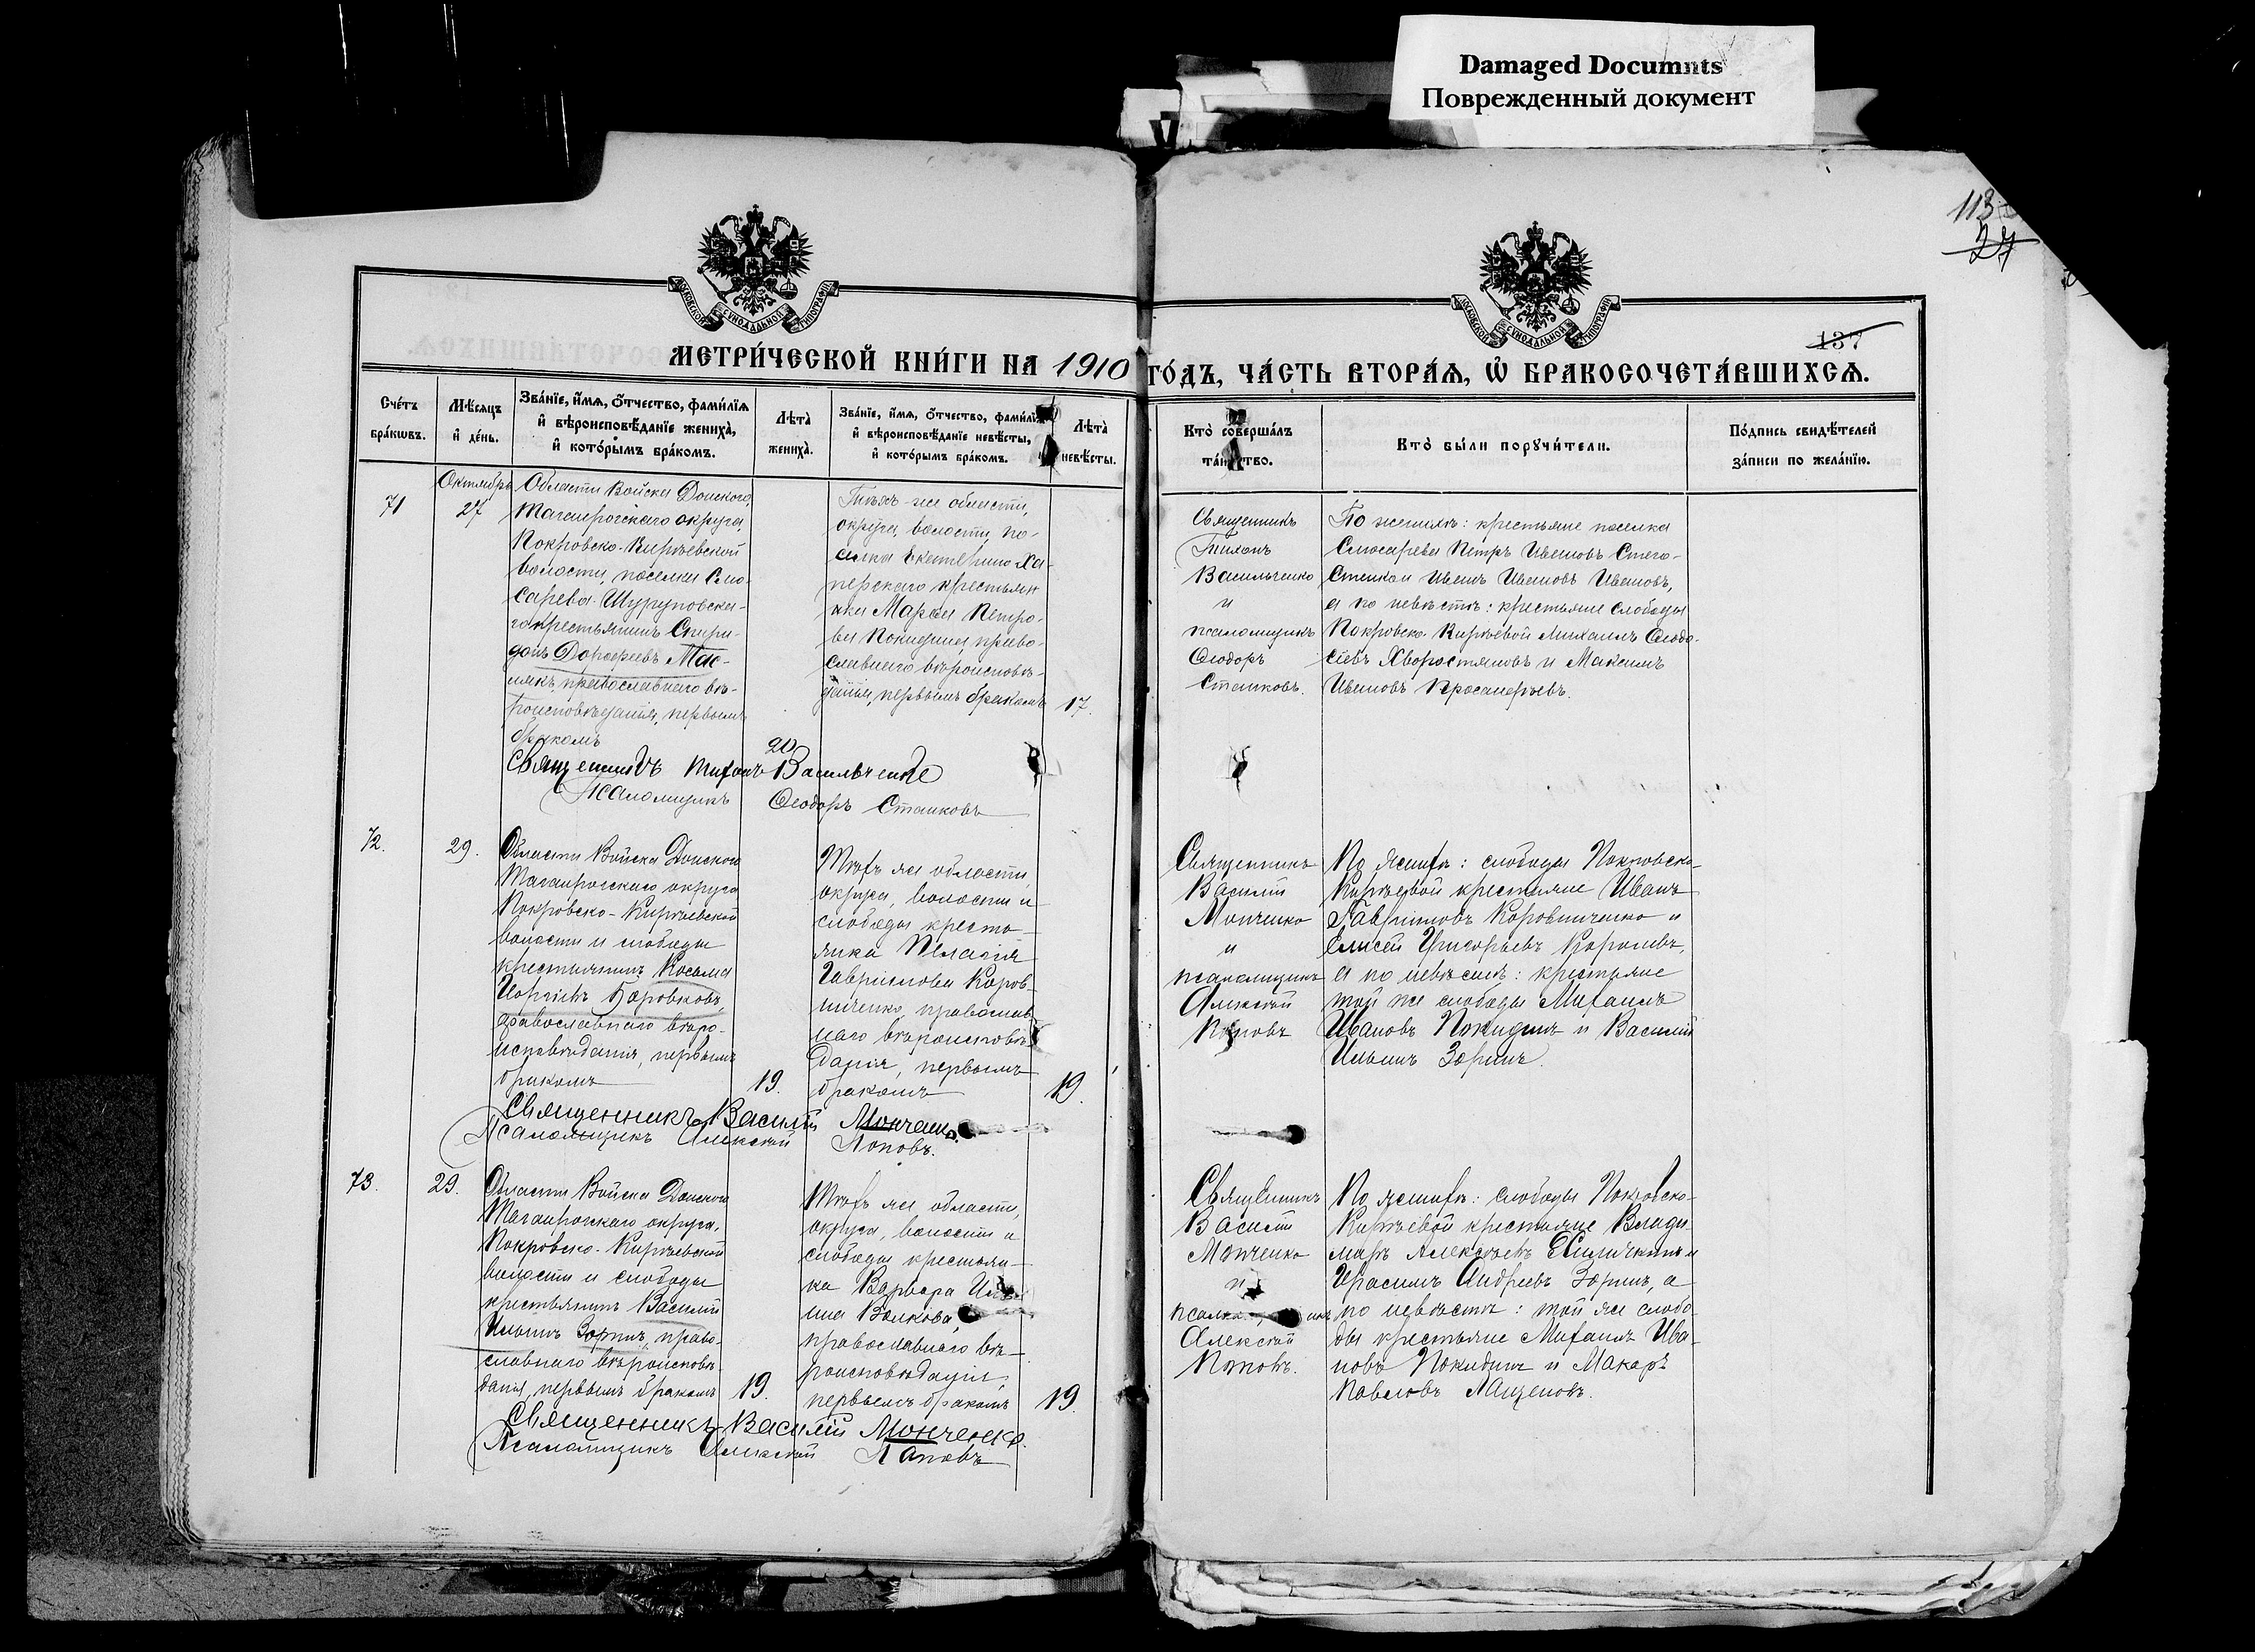 Damaged Documnts
Поврежденный документ
113
27
137
МОСКОВСКОЙ СѴНОДАЛЬНОЙ ТИПОГРАФІИ
МОСКОВСКОЙ СѴНОДАЛЬНОЙ ТИПОГРАФІИ
МЕТРИ́ЧЕСКОЙ КНИ́ГИ НА 1910 ГО́ДЪ, ЧА́СТЬ ВТОРА́Ѧ, Ѽ БРАКОСОЧЕТА́ВШИХСѦ.
Сче́тъ
бра́кѡвъ.
Мѣ́сѧцъ
и҆ де́нь.
Зва́нїе, и҆́мѧ, ѻ҆́тчество, фами́лїѧ
и҆ вѣроисповѣ́данїе жениха̀,
и҆ кото́рымъ бра́комъ.
Лѣта̀
жениха̀.
Зва́нїе, и҆́мѧ, ѻ҆́тчество, фами́лїѧ
и҆ вѣроисповѣ́данїе невѣ́сты,
и҆ кото́рымъ бра́комъ.
Лѣта̀
невѣ́сты.
Кто̀ соверша́лъ
та́инство.
Кто̀ бы́ли порꙋчи́тели.
По́дпись свидѣ́телей
за́писи по жела́нїю.
71
Октябрь
27
Области Войска Донского,
Таганрогскаго округа,
Покровско-Кирѣевской
волости, поселка Слю-
сарева-Шуруповска-
го крестьянинъ Спири-
донъ Дорофеевъ Мас-
лякъ, православнаго вѣ-
роисповѣданія, первымъ
бракомъ
20
Тѣхъ-же области,
округа, волости, по-
селка Екатерино-Ха-
перскаго крестьян
ка Марѳа Петро-
ва Покидина, право-
славнаго вѣроисповѣ-
данія, первымъ бракомъ
17.
Священникъ
Тихонъ
Васильченко
и
псаломщикъ
Ѳеодоръ
Станковъ.
По женихѣ: крестьяне поселка
Слюсарева Петръ Ивановъ
Иванъ Ивановъ Ивановъ,
а по невѣстѣ: крестьяне слободы
Покровско-Кирѣевой Михаилъ Ѳеодо-
сіевъ Хворостяновъ и Максимъ
Ивановъ
Священникъ Тихонъ Васильченко
Псаломщикъ Ѳеодоръ Станковъ
72.
29.
Области Войска Донского
Таганрогскаго округа
Покровско-Кирѣевской
волости и слободы
крестьянинъ Косьма
Боровковъ,
православнаго вѣро-
исповѣданія, первымъ
бракомъ
19.
Тѣхъ же области,
округа, волости и
слободы кресть-
янка Пелагія
Гаврилова Коров-
ниченко, православ
наго вѣроисповѣ-
данія, первымъ
бракомъ
19.
Священникъ
Василій
Монченко
и
псаломщикъ
Алексѣй
Поповъ
По женихѣ: слободы Покровско-
Кирѣевой крестьяне Иванъ
Гавриловъ Коровниченко и
Елисей Григорьевъ Королевъ,
а по невѣстѣ: крестьяне
той же слободы Михаилъ
Ивановъ Покидинъ и Василій
Ильинъ Зоринъ.
Священникъ Василій Мончен
Псаломщикъ Алексѣй Поповъ.
73.
29.
Области Войска Донского
Таганрогскаго округа,
Покровско-Кирѣевской
волости и слободы
крестьянинъ Василій
Ильинъ Зоринъ, право-
славнаго вѣроисповѣ
данія, первымъ бракомъ
19.
Тѣхъ же области,
округа, волости и
слободы крестьян-
ка Варвара Иль
ина Волкова,
православнаго вѣ-
роисповѣданія,
первымъ бракомъ
19.
Священникъ
Василій
Монченко
и
псалом
Алексѣй
Поповъ.
По женихѣ: слободы Покровско-
Кирѣевой крестьяне Влади
міръ Алексѣевъ и
Герасимъ Андреевъ Зоринъ, а
по невѣстѣ: той же слобо-
ды крестьяне Михаилъ Ива-
новъ Покидинъ и Макаръ
Павловъ Лащеновъ.
Священникъ Василій Мончено
Псаломщикъ Алексѣй Поповъ